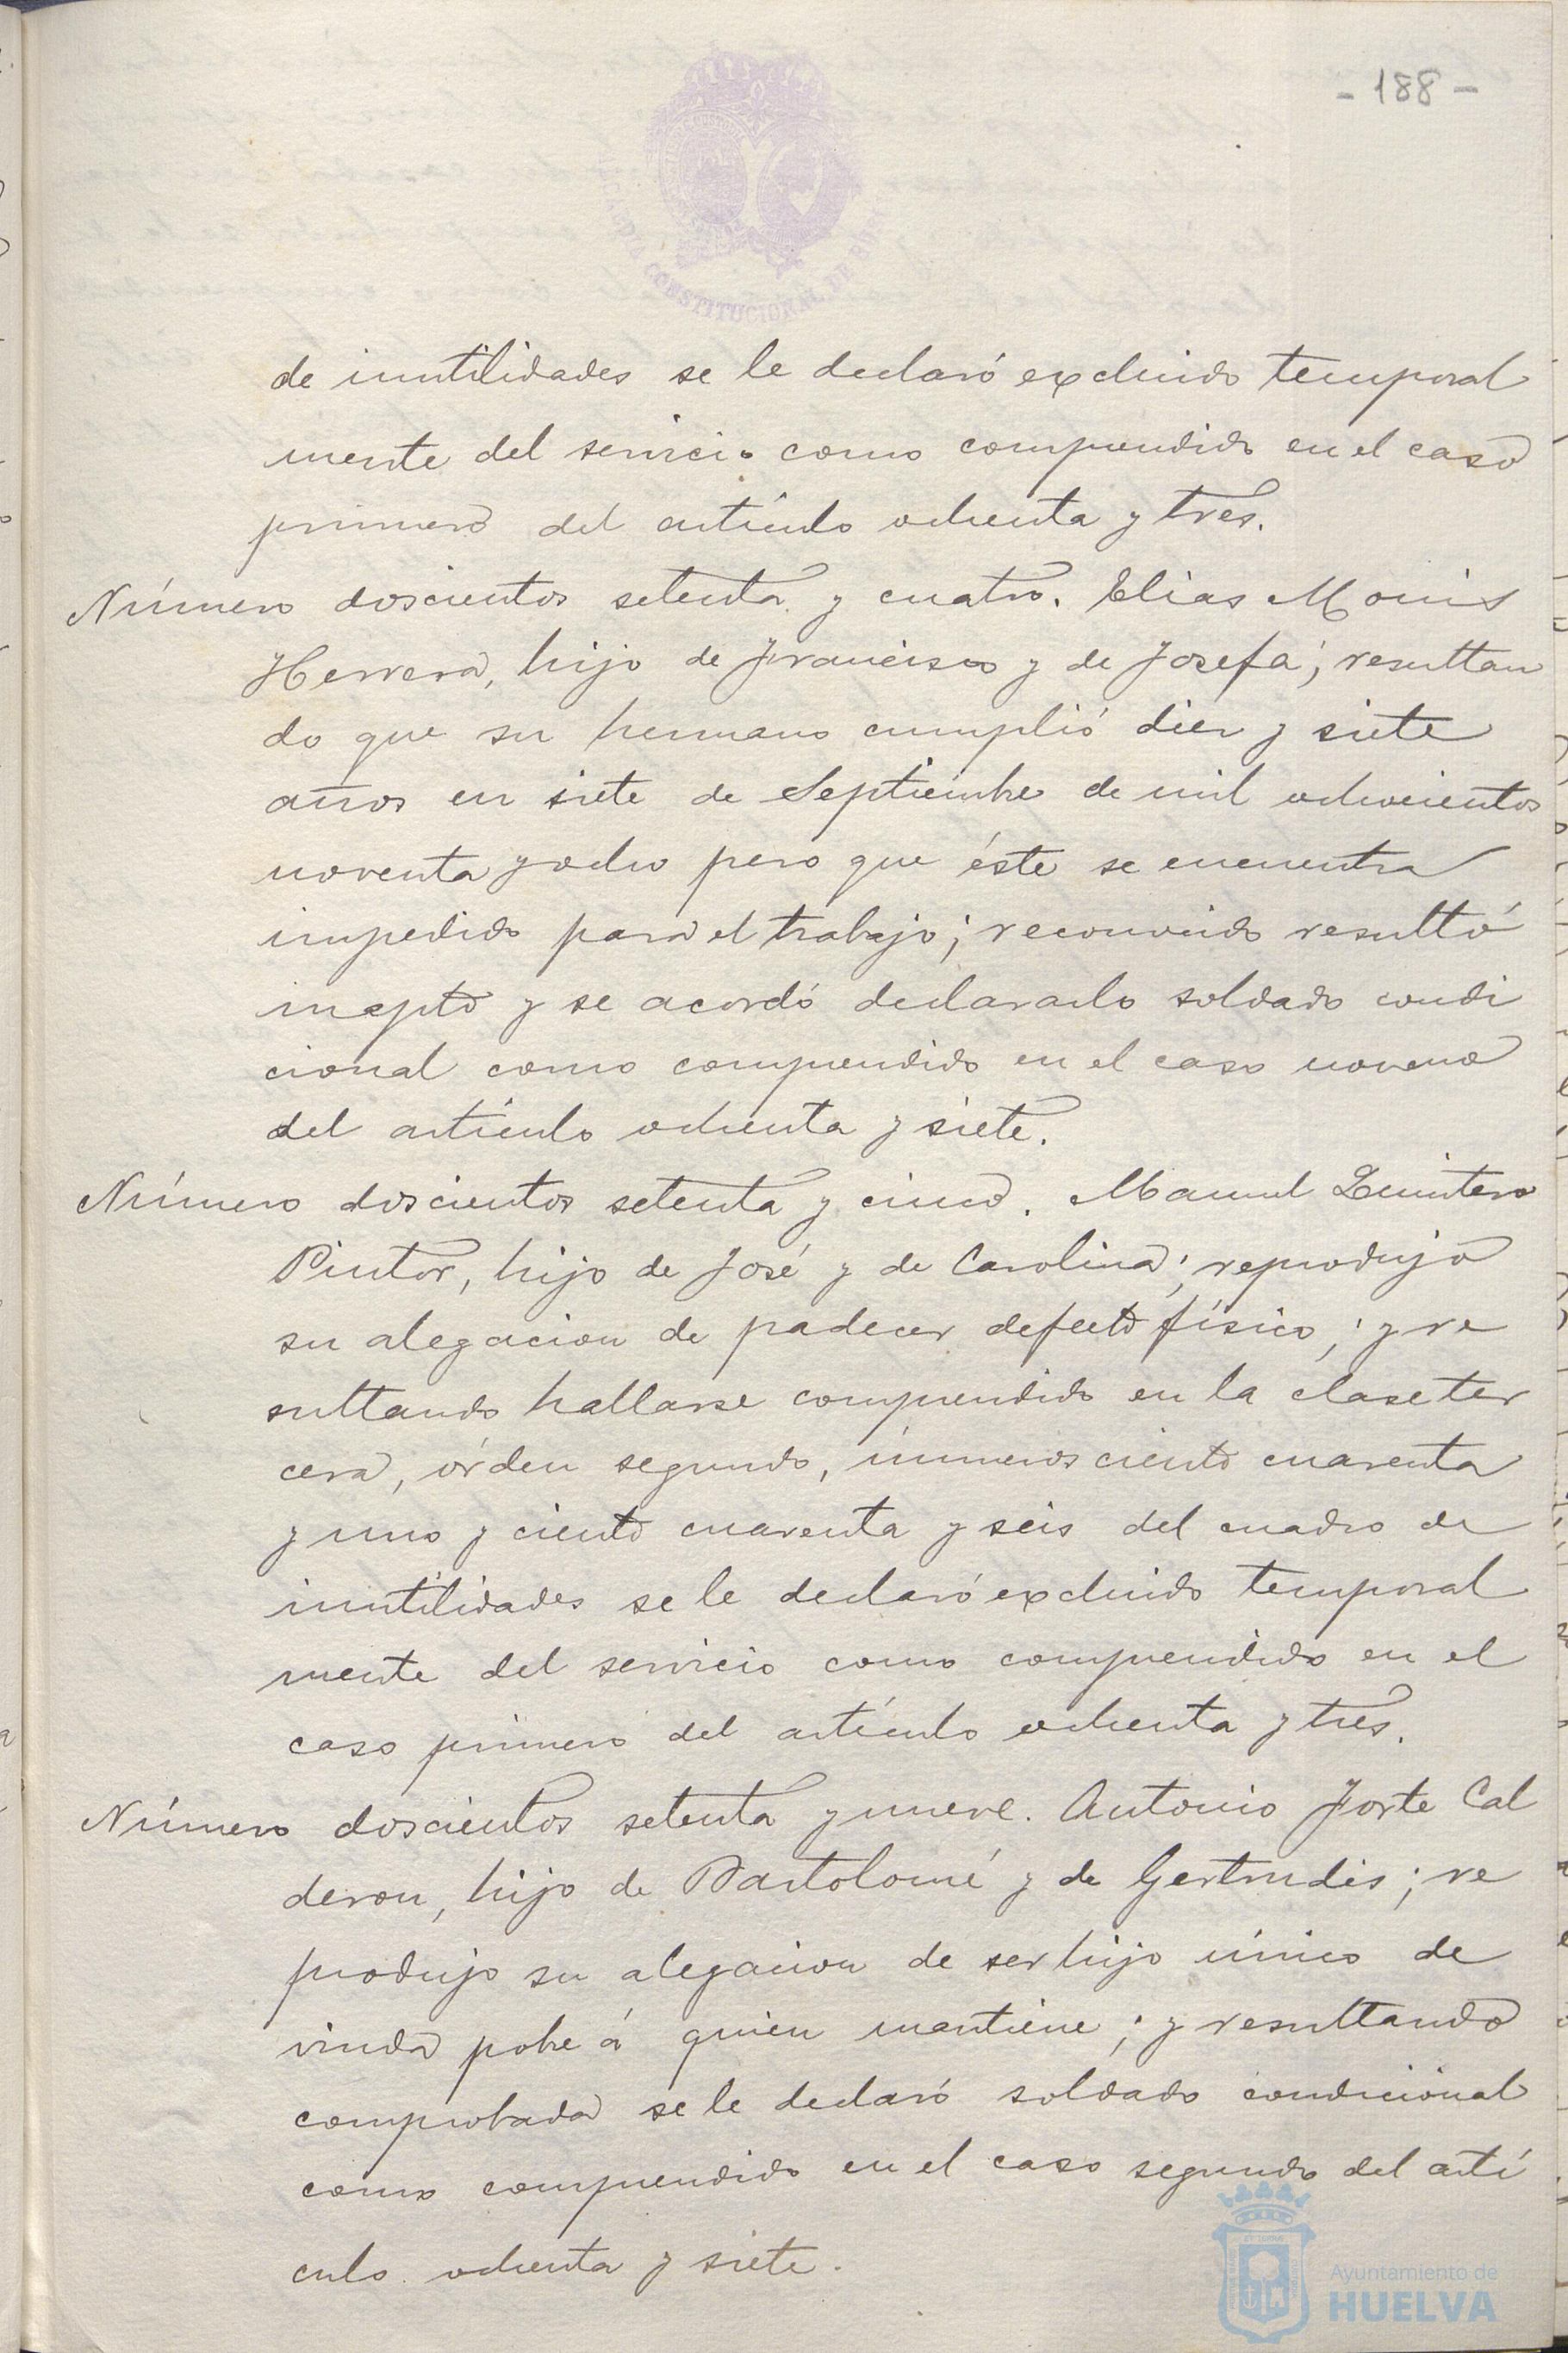 - 188 -
CONSTITUCIONAL DE
de inutilidades se le declaró excluido temporal
mente del servicio como comprendido en el caso
primero del artículo ochenta y tres.
Número doscientos setenta y cuatro. Elias Monis
Herrera, hijo de Francisco y de Josefa; resultan
do que su hermano cumplió diez y siete
años en siete de Septiembre de mil ochocientos
noventa y ocho pero que éste se encuentra
impedido para el trabajo; reconocido resultó
inepto y se acordó declararlo soldado condi
cional como comprendido en el caso noveno
del artículo ochenta y siete.
Número doscientos setenta y cinco. Manuel Quintero
Pintor, hijo de José y de Carolina; reprodujo
su alegacion de padecer defecto físico; y re
sultando hallarse comprendido en la clase ter
cera, órden segundo, números ciento cuarenta
y uno y ciento cuarenta y seis del cuadro de
inutilidades se le declaró excluido temporal
mente del servicio como comprendido en el
caso primero del artículo ochenta y tres.
Número doscientos setenta y nueve. Antonio Jorte Cal
deron, hijo de Bartolomé y de Gertrudis; re
produjo su alegacion de ser hijo único de
viuda pobre á quien mantiene; y resultando
comprobada se le declaró soldado condicional
como comprendido en el caso segundo del artí
culo ochenta y siete.
Ayuntamiento de
HUELVA